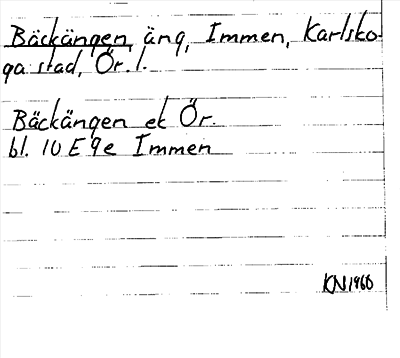 Bäckängen, äng, Immen, Karlsko-
ga stad, Ör. l.
Bäckängen ek Ör.
bl. 10 E 9e Immen
KN 1960